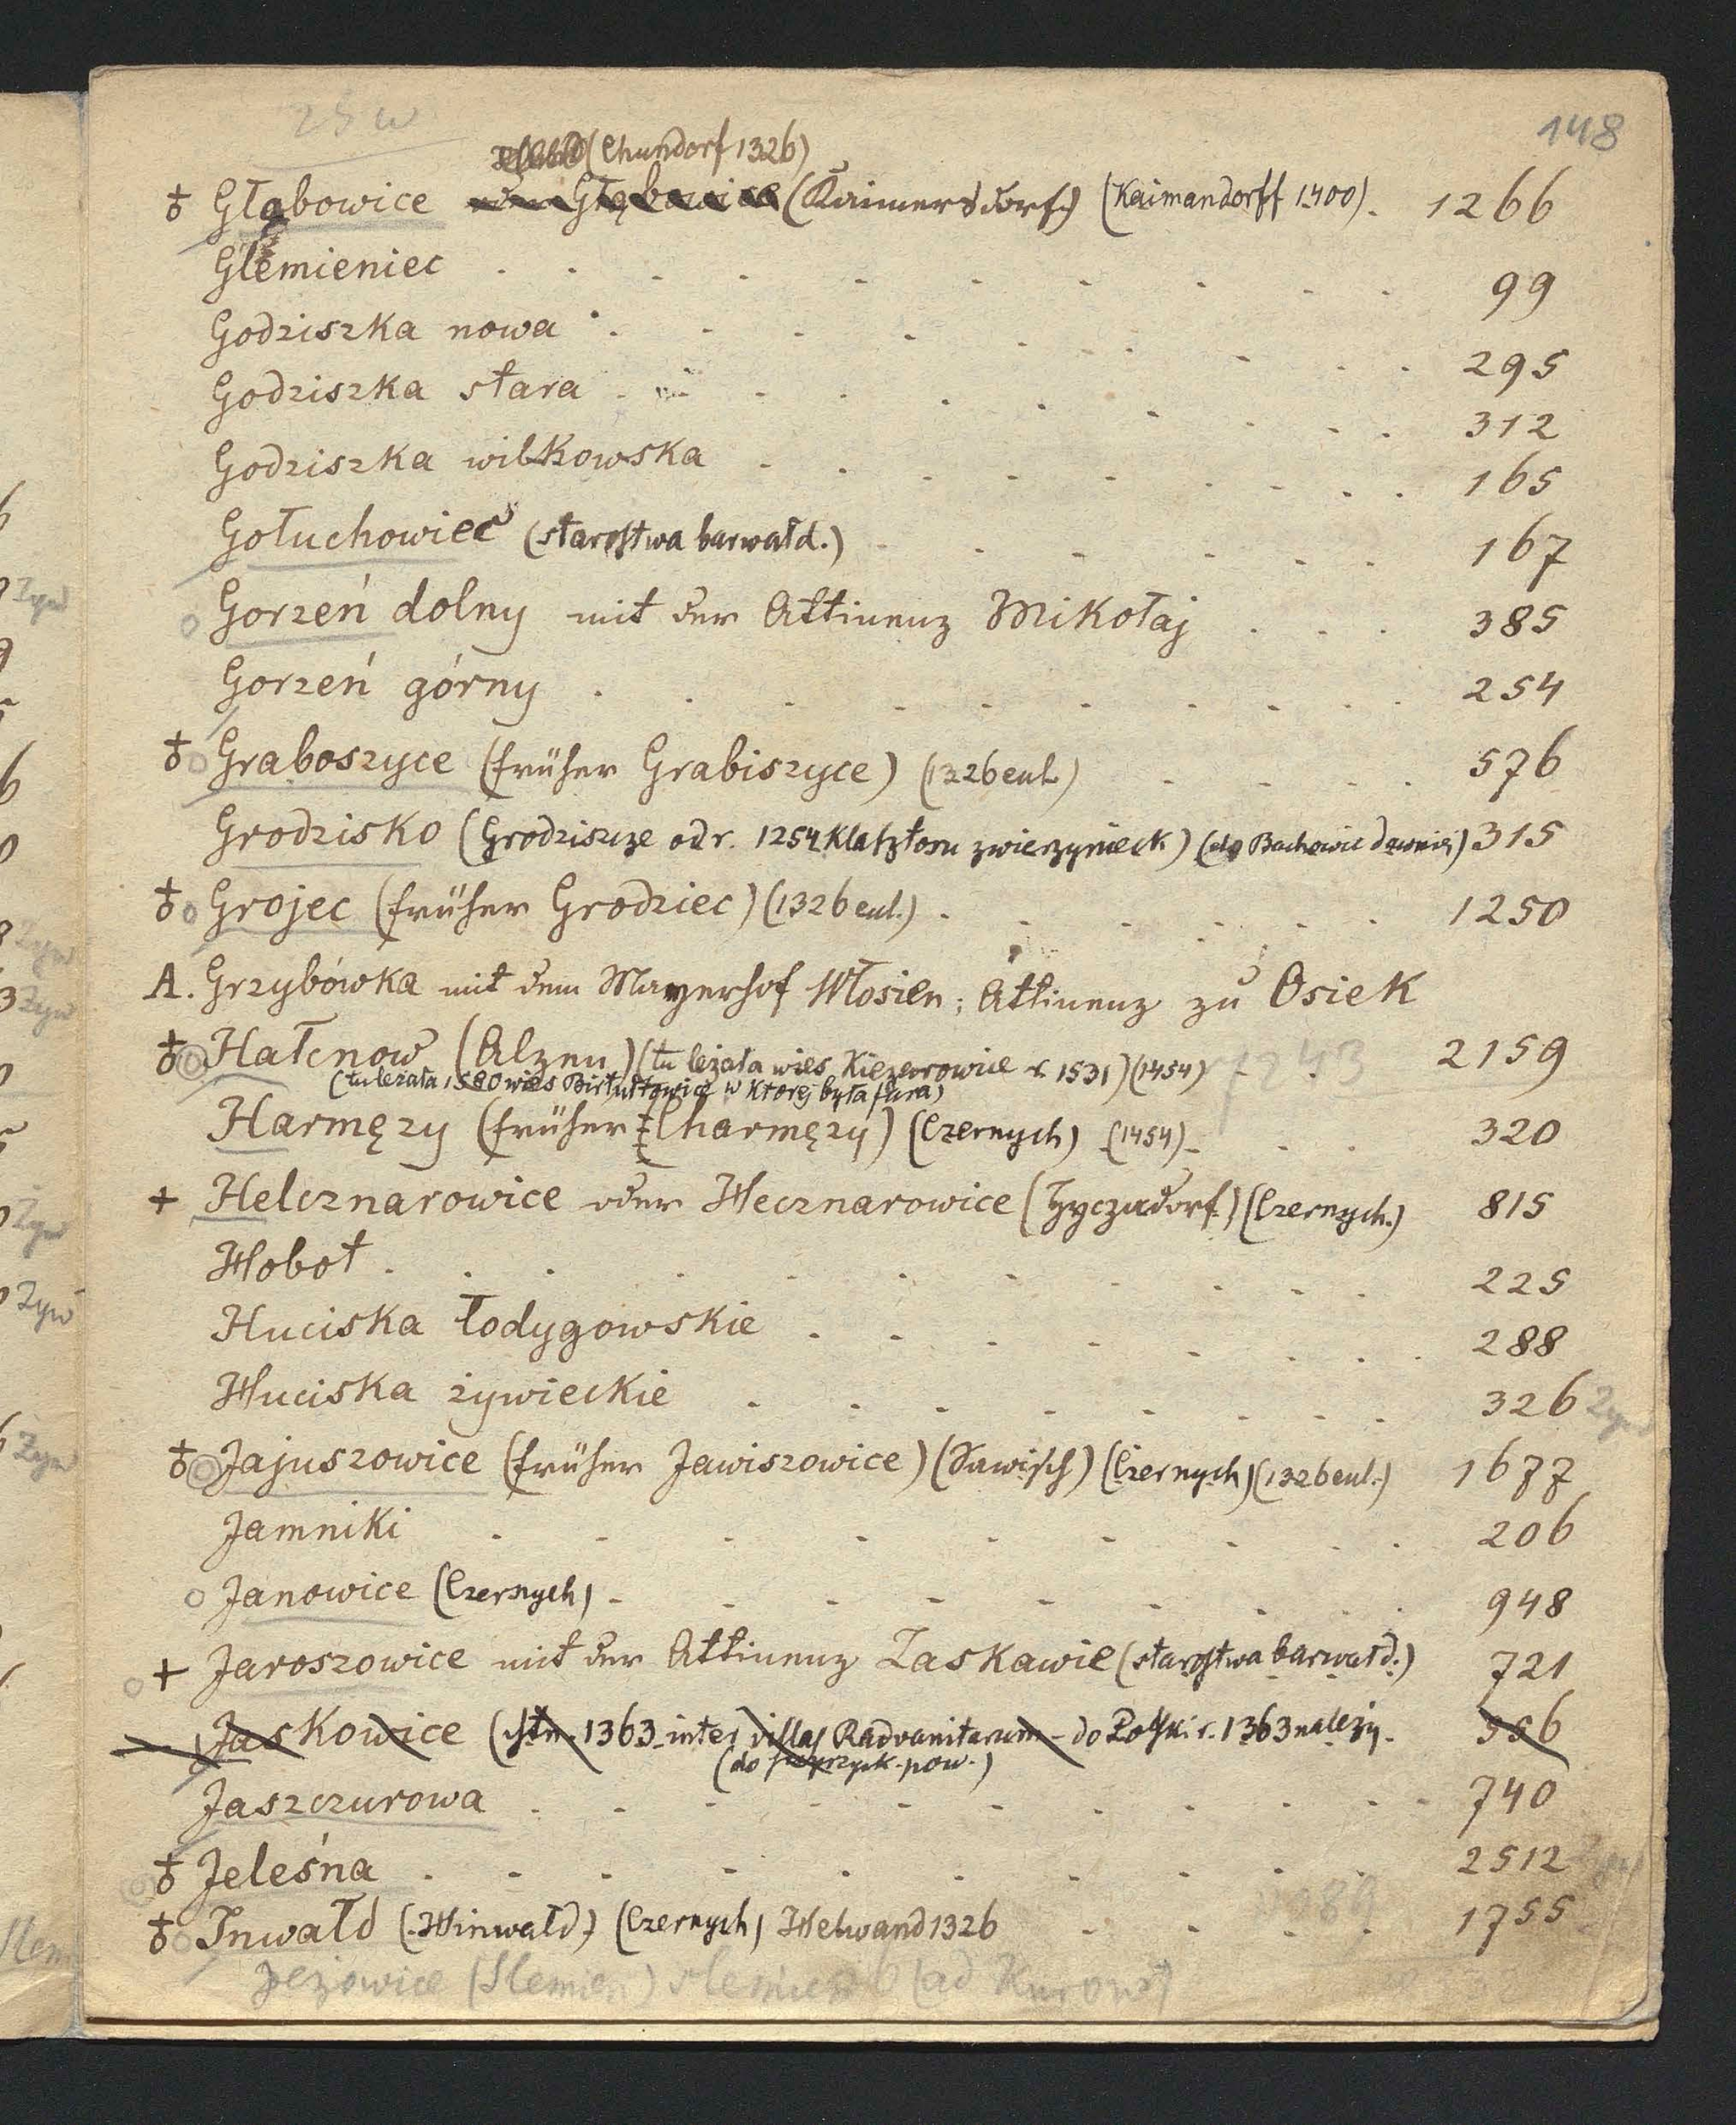 25 w
148
(Chundorf 1326)
♁ Głębowice oder Głębowice (Kaimersdorf) (Kaimandorff 1400). 1266
Glemieniec 99
Godziszka nowa 295
Godziszka stara 312
Godziszka wilkowska 165
Gołuchowiec (starostwa barwałd.) 167
Gorzeń dolny mit der Attinenz Mikołaj 385
Gorzeń górny 254
♁ Graboszyce (früher Grabiszyce) (1326 eul.) 576
Grodzisko (Grodziszcze od r. 1254 klasztoru zwierzynieck.) (do Bachowic dawniej) 315
♁ Grojec (früher Grodziec) (1326 eul.) 1250
A. Grzybówka mit dem Mayerhof Włosień; Attinenz zu Osiek
♁ Hałcnow (Alzen) (tu leżała wieś Kiezarowice r. 1531) (1454) 2159
(tu leżała 1580 wieś Birtułtowice w której była fara)
Harmęzy (früher Charmęzy) (Czernych) (1454) 320
+ Helcznarowice oder Hecznarowice (Hyczndorf) (Czernych.) 815
Hobot 225
Huciska łodygowskie 288
Huciska żywieckie 326 Żyw
♁ Jajuszowice (früher Jawiszowice) (Jawisch) (Czernych) (1326 eul.) 1677
Jamniki 206
Janowice (Czernych) 948
+ Jaroszowice mit der Attinenz Zaskawie (starostwa barwałd.) 721
Jaskowice (ist n. 1363 inter villas Radvanitarum - do Polski r. 1363 należy. 556
(do pow.)
Jaszczurowa 740
♁ Jeleśna 2512
♁ Inwałd (Hinwałd) (Czernych) Helwand 1326 1755
Jezowice (Slemień)